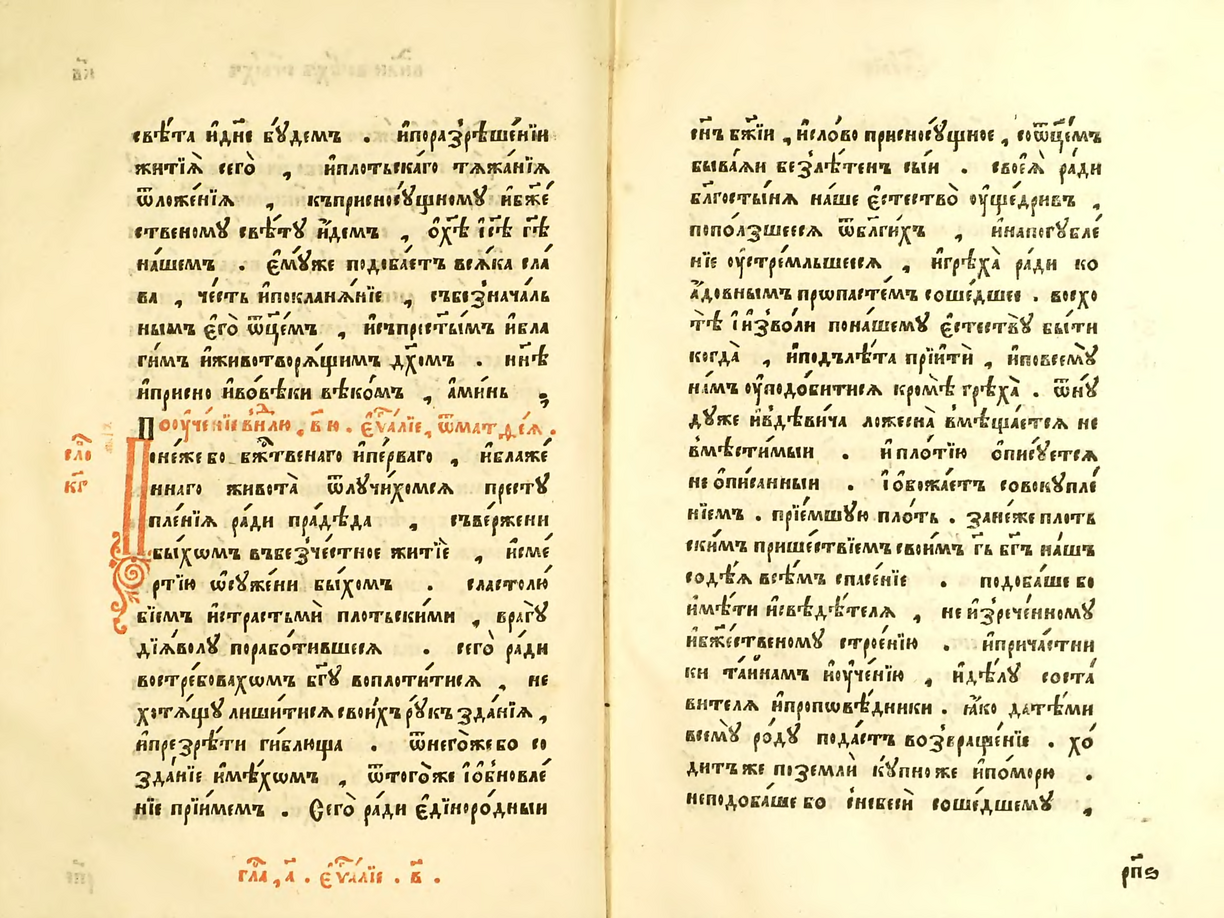 свѣ́та и҆дн҃е бꙋ́демъ . и҆поразрѣше́нїи
житїѧ̀ сего̀ , и҆плотьска́го тѧжа́нїѧ
ѿложе́нїѧ , къприсносꙋ́щномꙋ и҆бж҃е
ственомꙋ свѣ́тꙋ и҆́демъ , о҆хⷭ҇ѣ і҆сⷭ҇ѣ гⷭ҇ѣ
на́шемъ . є҆мꙋ́же подоба́етъ всѧ́ка сла
ва , че́сть и҆покланѧ́нїе , събезнача́ль
нымъ є҆го̀ ѿц҃емъ , и҆счпрⷭ҇ты́мъ и҆бла
ги́мъ и҆животворѧ́щимъ дх҃омъ . ны́нѣ
и҆при́сно и҆вовѣ́ки вѣко́мъ , а҆ми́нь ,
Поꙋче́нїе вндⷧ҇ю , в҃ ю . є҆ѵⷢ҇а́лїе , ѿматѳе́ѧ .
сло
к҃г
Понеже бо бжⷭ҇твенаго и҆пе́рваго , и҆блаже́
ннаго живота̀ ѿлꙋчи́хомсѧ престꙋ
пле́нїѧ ра́ди пра́дѣда , съве́ржени
бы́хѡмъ въбезче́стное житїѐ , и҆сме́
ртїю ѡ҆сꙋ́жени бы́хомъ . сластолю́
бїемъ и҆страстьмѝ плотьски́ми , врагꙋ̀
дїѧ́волꙋ порабо́тившесѧ . сего̀ ра́ди
востре́бовахѡмъ бг҃ꙋ воплоти́тисѧ , не
хотѧ́щꙋ лиши́тисѧ свои́хъ рꙋ́къ зда́нїѧ ,
и҆презрѣ́ти ги́блюща . ѿнего́же бо со
зда́нїе и҆мѣ́хѡмъ , ѿтого́же і҆ѡбновле́
нїе прїи́мемъ . Сего̀ ра́ди є҆дїноро́дныи
гла҃ , а҃ . є҆ѵⷢ҇а́лїе . в҃ .
сн҃ъ бж҃їи , и҆сло́во присносꙋ́щное , соѿц҃е́мъ
быва́ѧи безлѣ́тенъ сыи . своеѧ̀ ра́ди
бл҃госты́нѧ на́ше є҆стество̀ оу҆ще́дривъ ,
попо́лзшеесѧ ѿбл҃ги́хъ , и҆напогꙋбле́
нїе оу҆стреми́льшеесѧ , и҆грѣха̀ ра́ди ко
а҆́довнымъ прѡпасте́мъ соше́дшее . восхо
тѣ̀ і҆и҆зво́ли понашемꙋ̀ є҆стествꙋ̀ бы́ти
когда̀ , и҆подълѣ́та прїитѝ , и҆повсемꙋ̀
на́мъ оу҆подо́битисѧ кромѣ̀ грѣха̀ . ѿнꙋ
дꙋ́же и҆вдѣ́вича ложесна̀ вмѣща́етсѧ не
вмѣсти́мыи . и҆ пло́тїю ѡ҆писꙋ́етсѧ
не ѡ҆пи́санныи . і҆ѡбожа́етъ совокꙋпле́
нїемъ . прїе́мшꙋю пло́ть . зане́же плоть
ски́мъ прише́ствїемъ свои́мъ гь҃ бг҃ъ на́шъ
содѣ́ѧ всѣ́мъ спасе́нїе . подоба́ше бо
и҆мѣ́ти и҆свѣдѣ́телѧ , не и҆зрече́нномꙋ
и҆бжⷭ҇е́ственомꙋ̀ строе́нїю . и҆прича́стни
ки та́йнамъ и҆оу҆че́нїю , и҆дѣ́лꙋ соста́
вителѧ и҆проповѣ́дники . ꙗ҆́ко да тѣ́ми
всемꙋ̀ ро́дꙋ пода́стъ возвраще́нїе . хо́
дитъ же поземлѝ кꙋ́пно же и҆помо́рю .
неподоба́ше бо снебесѝ соше́дшемꙋ ,
рп҃ѳ